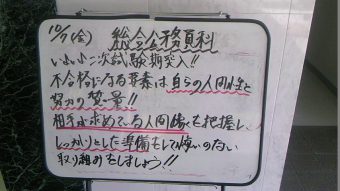 10/7(金) 総合公務員科
いよいよ二次試験期突入!!
不合格になる要素は自らの人間性と
努力の質・量!!
相手は求めている人間像を把握し、
しっかりとした準備をして悔いのない
取り組みをしましょう!!